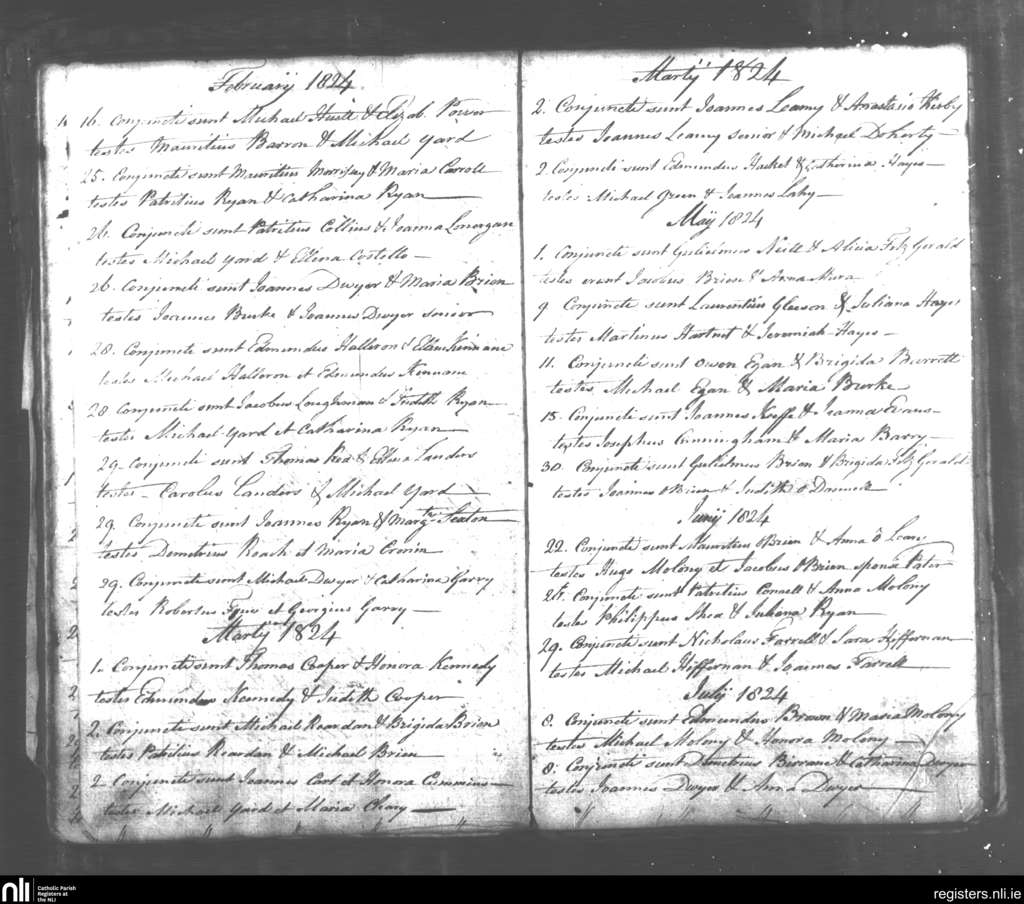 February 1824
16. Conjuncti sunt Michael & Elizab. Power
testes Mauritius Barron & Michael Yard
25. Conjuncti sunt Mauritius Morrissy & Maria Carroll
testes Patritius Ryan & Catharina Ryan
26. Conjuncti sunt Patritius Collins & Joanna Lonergan
testes Michael Yard & Ellena Costello
26. Conjuncti sunt Joannes Dwyer & Maria Brien
testes Joannes Burke & Joannes Dwyer senior
28. Conjuncti sunt Edmundus Halloron & Ellen Kinnane
testes Michael Halloron et Edmundus Kinnane
28 Conjuncti sunt Jacobus Loughnan & Judith Ryan
testes Michael Yard et Catharina Ryan
29. Conjuncti sunt Thomas & Ellena Landers
testes Carolus Landers & Michael Yard
29. Conjuncti sunt Joannes Ryan & Margtta Seaton
testes Demetrius Roach et Maria Cronin
29. Conjuncti sunt Michael Dwyer & Catharina Garry
testes Robertus et Georgius Garry
Martij 1824
1. Conjuncti sunt Thomas Cooper & Honora Kennedy
testes Edmundus Kennedy & Judith Cooper
2. Conjuncti sunt Michael Reardan & Brigida Brien
testes Patritius Reardan & Michael Brien
2 Conjuncti sunt Joannes et Honora Cummins
testes Michael Yard et Maria
Martij 1824
2. Conjuncti sunt Joannes Leamy & Anastasia Kirby
testes Joannes Leamy senior & Michael Doherty
2. Conjuncti sunt Edmundus Hacket & Catherina Hayes
testes Michael & Joannes Lahy
Maij 1824
1. Conjuncti sunt Gulielmus Neill & Alicia Fitz Gerald
testes erant Jacobus Brien & Anna
9 Conjuncti sunt Laurentius Gleeson & Juliana Hayes
testes Martinus Hartnet & Jeremiah Hayes
11. Conjuncti sunt Owen Egan & Brigida Barrett
testes Michael Egan & Maria Burke
15. Conjuncti sunt Joannes Keeffe & Joanna Evans
testes Josephus Cunningham & Maria Barry
30. Conjuncti sunt Gulielmus Brien & Brigida Fitz Gerald
testes Joannes O Brien & Judith
Junij 1824
22. Conjuncti sunt Mauritius O Brien & Anna O Leary
testes Hugo Molony et Jacobus O Brien sponsi Pater
26. Conjuncti sunt Patritius Connell & Anna Molony
testes Philippus Shea & Juliana Ryan
29. Conjuncti sunt Nicholaus Farrell & Sara Hiffernan
testes Michael Hiffernan & Joannes Farrell
Julij 1824
8. Conjuncti sunt Edmundus Brown & Maria Molony
testes Michael Molony & Honora Molony
8. Conjuncti sunt Demetrius & Catharina Dwyer
testes Joannes Dwyer & Anna Dwyer
nli Catholic Parish
Registers at
the NLI
registers.nli.ie